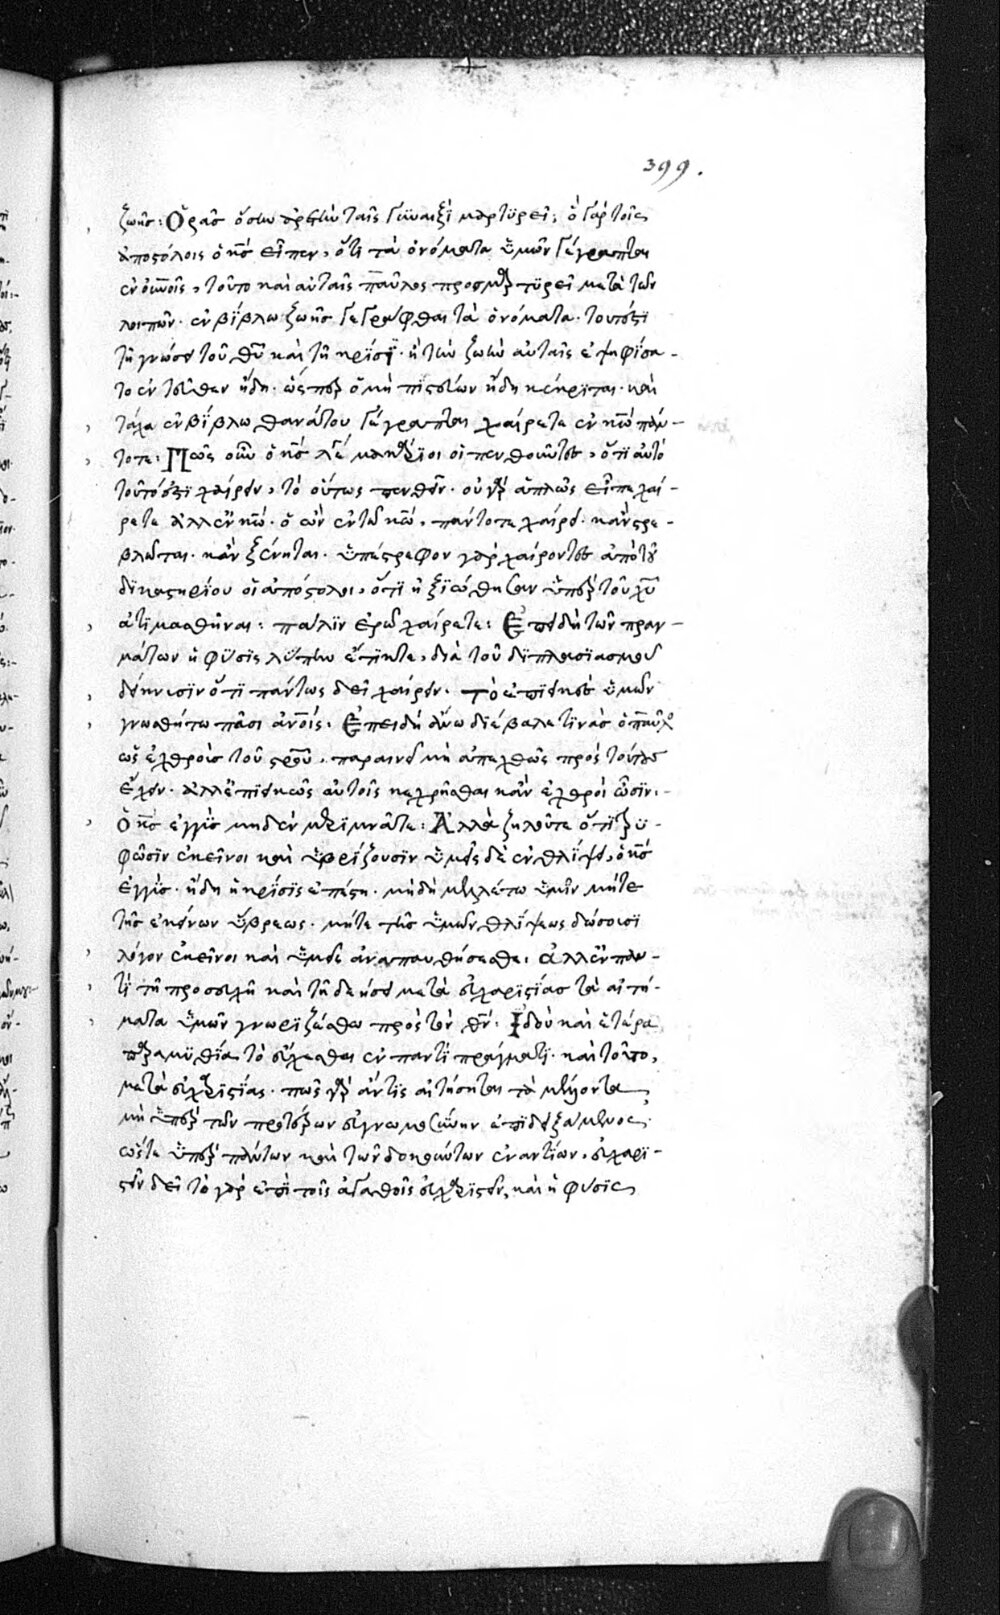 399.
ζωῆς: Ὁρᾶς ὅσην ἀρετὴν ταῖς γυναιξὶ μαρτυρεῖ; ὃ γὰρ τοῖς
ἀποστόλοις ὁ κ̅ς̅ εἶπεν, ὅτι τὰ ὀνόματα ὑμῶν γέγραπται
ἐν οὐ̅νοῖς, τοῦτο καὶ αὐταῖς παῦλος προσμαρτυρεῖ μετὰ τῶν
λοιπῶν. ἐν βίβλω ζωῆς γεγράφθαι τὰ ὀνόματα. τουτέστι
τῇ γνώσει τοῦ θ̅υ̅ καὶ τῇ κρίσει. ἢ τὴν ζωὴν αὐταῖς ἐψηφίσα-
το ἐντεῦθεν ἤδη. ὥσπερ ὁ μὴ πιστεύων ἤδη κέκριται. καὶ
τάχα ἐν βίβλω θανάτου γέγραπται χαίρετε ἐν κ̅ω̅ πάν-
τοτε: Πῶς οὖν ὁ κ̅ς̅ λέγει μακάριοι οἱ πενθοῦντες, ὅτι αὐτὸ
τοῦτό ἐστι χαίρειν, τὸ οὕτως πενθεῖν. οὐ γὰρ ἁπλῶς εἶπε χαί-
ρετε ἀλλ' ἐν κ̅ω̅. ὁ ὢν ἐν τῶ κ̅ω̅, πάντοτε χαίρει. κἂν στρε-
βλῶται. κἂν ξένηται. ὑπέστρεφον γὰρ χαίροντες ἀπὸ τοῦ
δικαστηρίου οἱ ἀπόστολοι, ὅτι ἠξιώθησαν ὑπὲρ τοῦ χ̅υ̅
ἀτιμασθῆναι: πάλιν ἐρῶ χαίρετε: Ἐπειδὴ τῶν πραγ-
μάτων ἡ φύσις λύπην ἔτικτε, διὰ τοῦ διπλασιασμοῦ
δείκνυσιν ὅτι πάντως δεῖ χαίρειν. τὸ ἐπιεικὲς ὑμῶν
γνωσθήτω πᾶσι ἀν̅οις: Ἐπειδὴ ἄνω διέβαλε τινὰς ὁ παῦλος
ὡς ἐχθροὺς τοῦ στ̅ρου, παραινεῖ μὴ ἀπεχθῶς πρὸς τούτους
ἔχειν. ἀλλ' ἐπιεικῶς αὐτοῖς κεχρῆσθαι κἂν ἐχθροὶ ὦσιν:-
ὁ κ̅ς̅ ἐγγύς μηδὲν μεριμνᾶτε: Ἀλλὰ ζηλοῦτε ὅτι τρυ-
φῶσιν ἐκεῖνοι καὶ ὑβρίζουσιν ὑμεῖς δὲ ἐν θλίψει, ὁ κ̅ς̅
ἐγγύς. ἤδη ἡ κρίσις ἐπέστη. μὴ δὴ μελέτω ὑμῖν μήτε
τῆς ἐκείνων ὕβρεως. μήτε τῆς ὑμῶν θλίψεως δώσουσι
λόγον ἐκεῖνοι καὶ ὑμεῖς ἀναπαυθήσεσθε. ἀλλ' ἐν παν-
τὶ τῇ προσευχῇ καὶ τῇ δεήσει μετὰ εὐχαριστίας τὰ αἰτή-
ματα ὑμῶν γνωριζέσθω πρὸς τὸν θ̅ν̅: Ἰδοὺ καὶ ἑτέρα
παραμυθία τὸ εὔχεσθαι ἐν παντὶ πράγματι. καὶ τοῦτο,
μετὰ εὐχαριστίας. πῶς γὰρ ἄν τις αἰτήσηται τὰ μέλλοντα,
μὴ ὑπὲρ τῶν προτέρων εὐγνωμοσύνην ἐπιδειξάμενος;
ὥστε ὑπὲρ πάντων καὶ τῶν δοκούντων ἐναντίων, εὐχαρι-
στεῖν δεῖ τὸ γὰρ ἐπὶ τοῖς ἀγαθοῖς εὐχαριστεῖν, καὶ ἡ φύσις